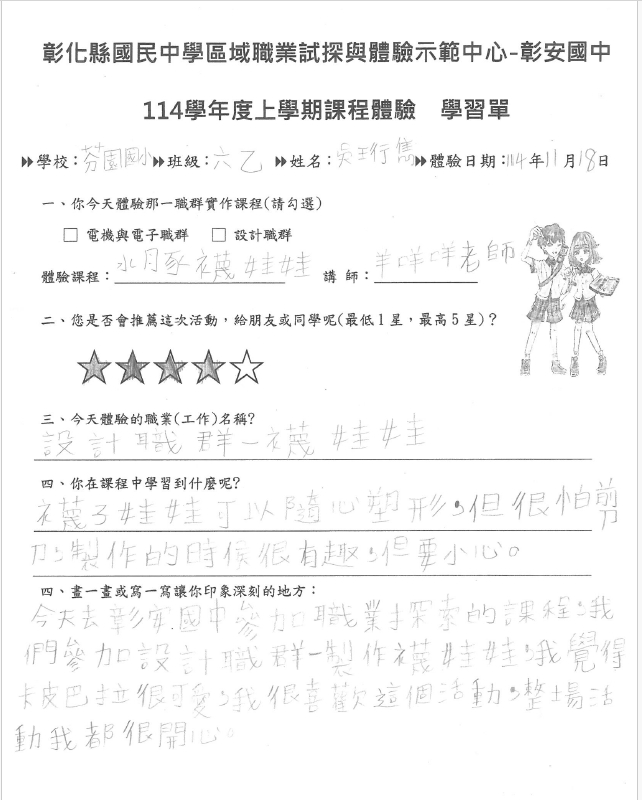 彰化縣國民中學區域職業試探與體驗示範中心-彰安國中
114學年度上學期課程體驗 學習單
學校：芬園國小 班級：六乙 姓名：吳珩雋 體驗日期：114年11月18日
一、你今天體驗那一職群實作課程(請勾選)
□ 電機與電子職群 □ 設計職群
體驗課程：水月豕襪娃娃 講 師：羊咩咩老師
二、您是否會推薦這次活動，給朋友或同學呢(最低1星，最高5星)？
三、今天體驗的職業(工作)名稱?
設計職群－襪娃娃
四、你在課程中學習到什麼呢?
襪子娃娃可以隨心塑形，但很怕剪
刀，製作的時候很有趣，但要小心。
四、畫一畫或寫一寫讓你印象深刻的地方：
今天去彰安國中參加職業探索的課程，我
們參加設計職群－製作襪娃娃，我覺得
卡皮巴拉很可愛，我很喜歡這個活動，整場活
動我都很開心。